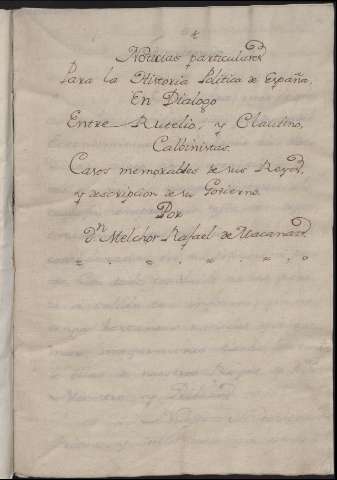 Noticias particulares
Para la Historia Politica de España,
En Dialogo
Entre Rutelio, y Claudino,
Calbinistas.
Casos memorables de sus Reyes,
y descripcion de su Govierno.
Por
Dn Melchor Rafael de Macanaz.